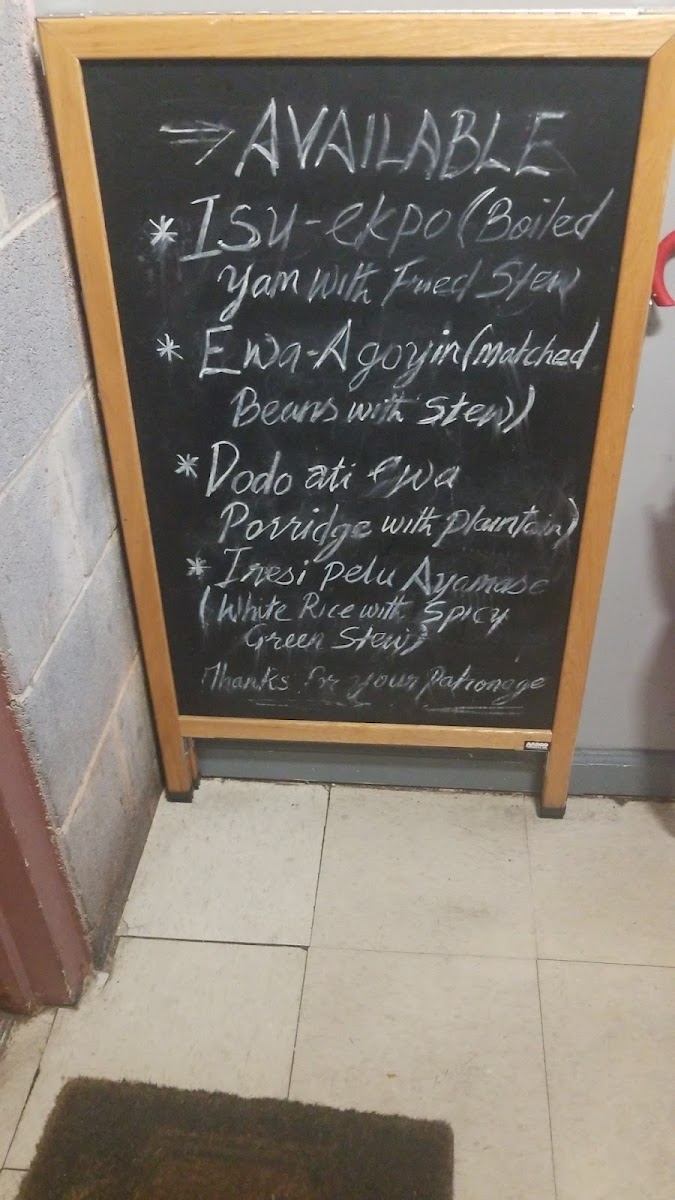 ⇒ AVAILABLE
* Isu-ekpo (Boiled
Yam with Fried Stew
* Ewa-Agoyin (Matched
Beans with Stew)
* Dodo ati Ewa
Porridge with plaintain)
* Iresi pelu Ayamase
(White Rice with Spicy
Green Stew)
Thanks for your Patronage